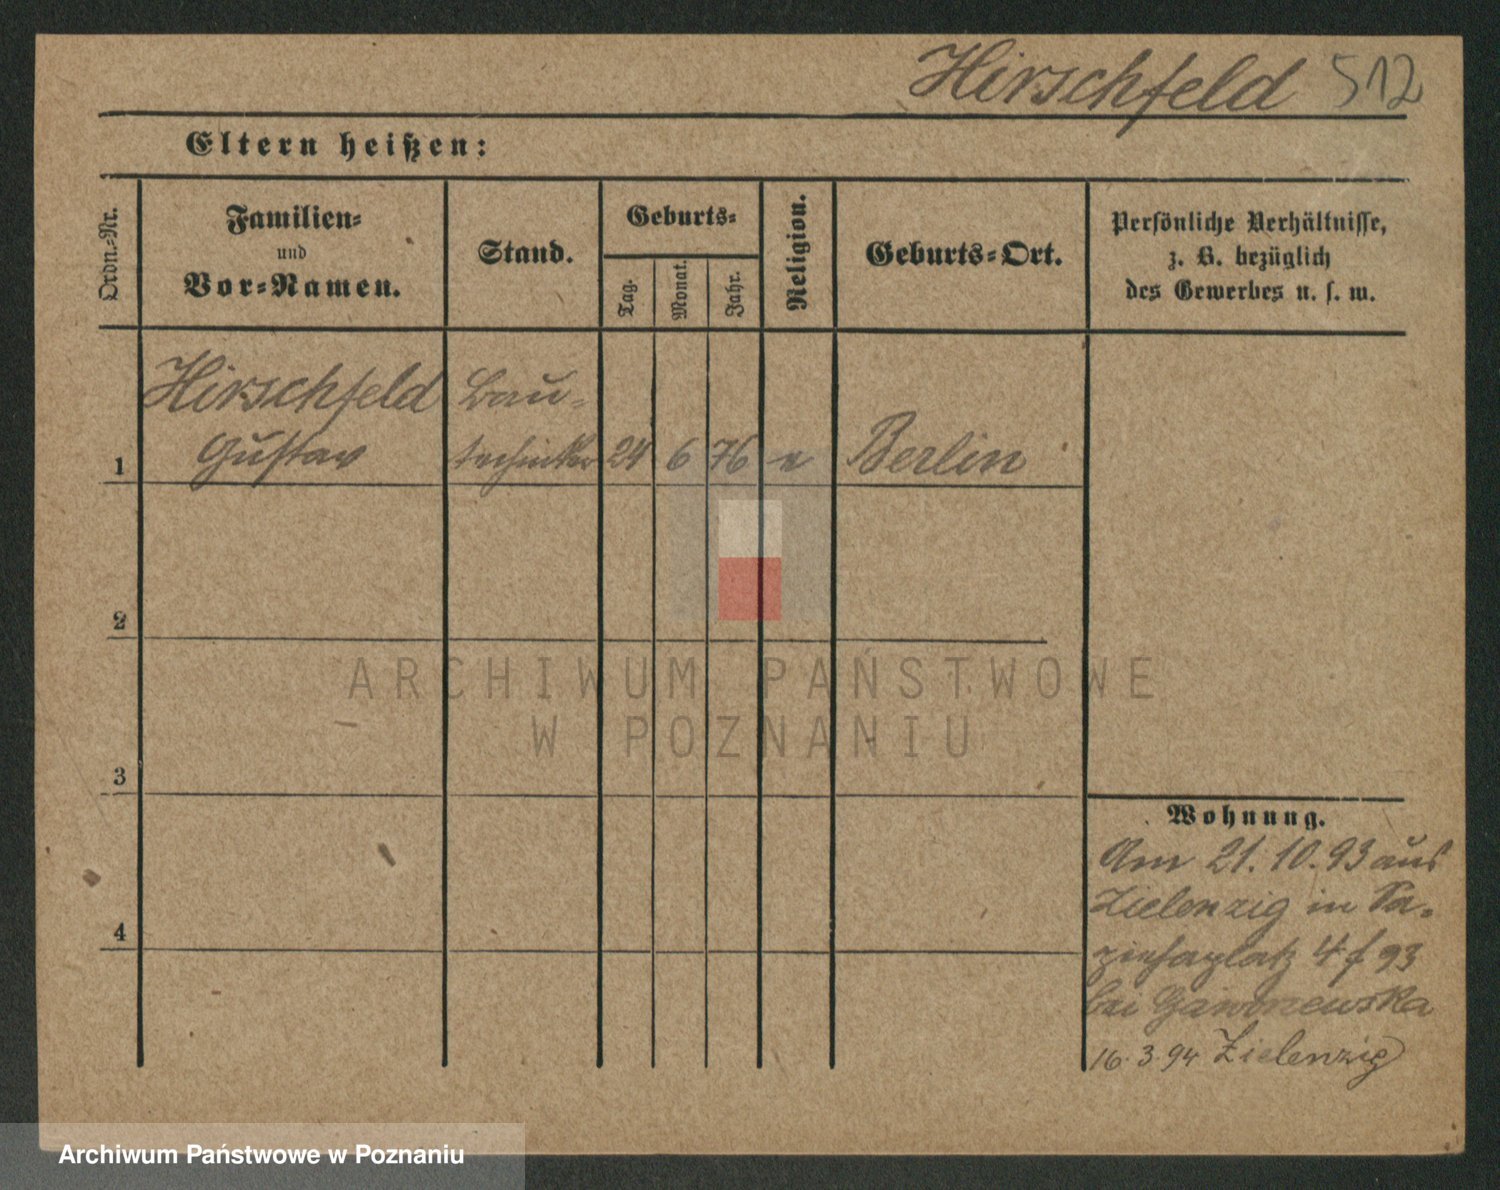 Hirschfeld 512
Eltern heißen:
Ordn.-Nr.
Familien-
und
Vor-Namen.
Stand.
Geburts-
Tag.
Monat.
Jahr.
Religion.
Geburts-Ort.
Persönliche Verhältnisse,
z. B. bezüglich
des Gewerbes u. s. w.
Hirschfeld Bau-
1 Gustav techniker 24 6 76 e Berlin
2
3
4
Wohnung.
Am 21.10.93 aus
Zielenzig in Sa-
piehaplatz 4 f 93
bei Gawronewska
16.3.94 Zielenzig
ARCHIWUM PAŃSTWOWE
W POZNANIU
Archiwum Państwowe w Poznaniu